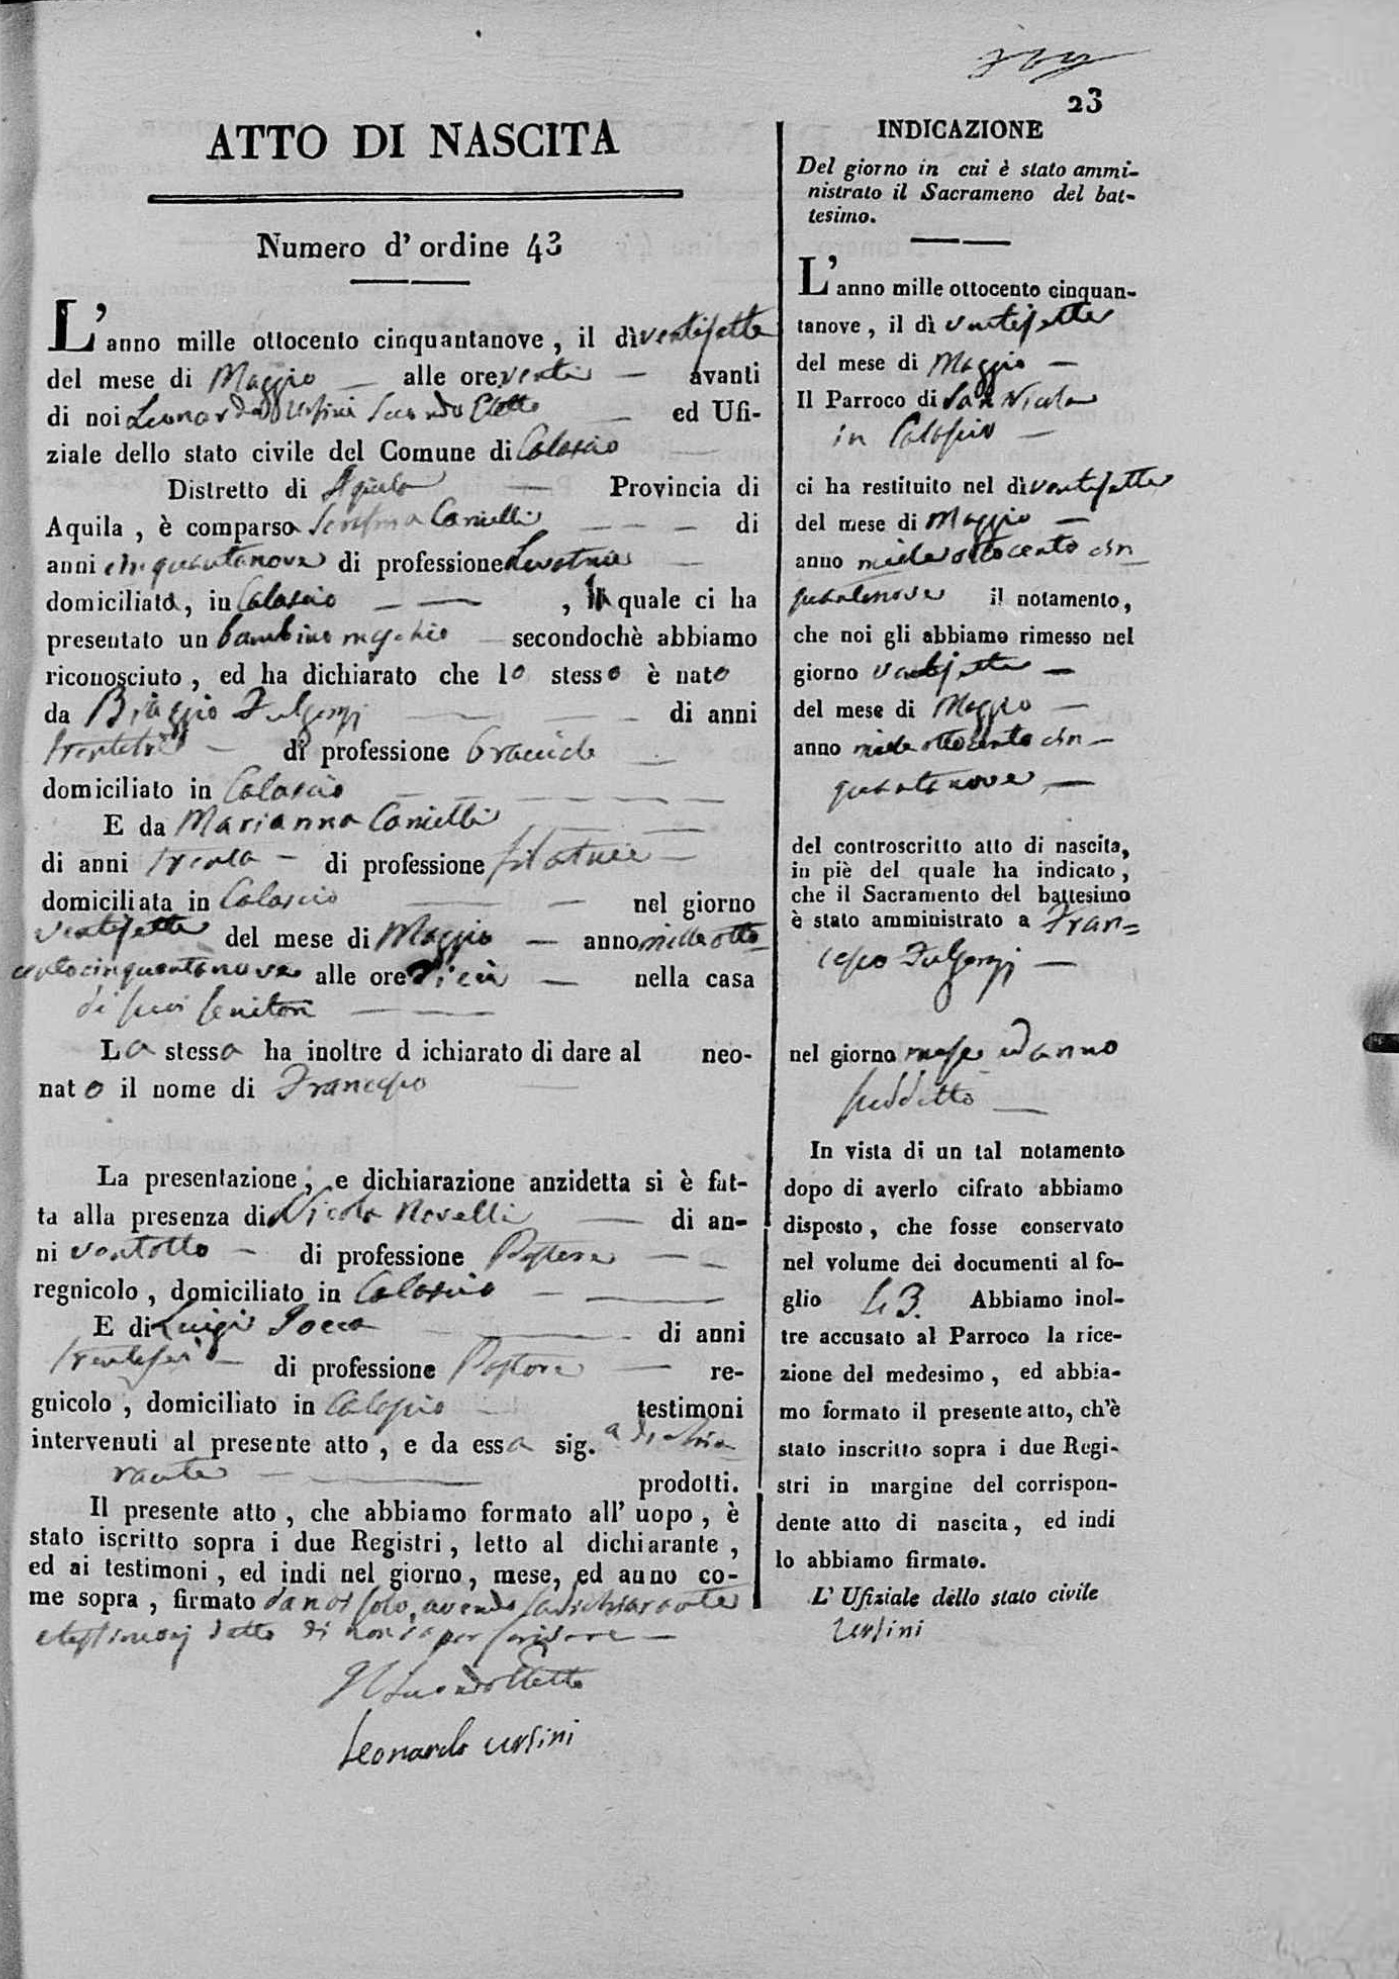 23
ATTO DI NASCITA
Numero d' ordine 43
L'anno mille ottocento cinquantanove, il dì ventisette
del mese di Maggio — alle ore venti — avanti
di noi Leonardo Ursini Secondo Eletto — ed Ufi-
ziale dello stato civile del Comune di Calascio —
Distretto di Aquila — Provincia di
Aquila, è comparsa Serafina Camilli — — — di
anni cinquantanove di professione Levatrice —
domiciliata, in Calascio — — , la quale ci ha
presentato un bambino maschio — secondochè abbiamo
riconosciuto, ed ha dichiarato che lo stesso è nato
da Biaggio Fulgenzi — — — di anni
trentatre — di professione bracciale —
domiciliato in Calascio — — — — —
E da Marianna Camilli — —
di anni trenta — di professione filatrice —
domiciliata in Calascio — — nel giorno
ventisette del mese di Maggio — anno mille otto
centocinquantanove alle ore dieci — nella casa
di suoi genitori — —
La stessa ha inoltre d ichiarato di dare al neo-
nato il nome di Francesco
La presentazione, e dichiarazione anzidetta si è fat-
ta alla presenza di Nicola Novelli — di an-
ni ventotto — di professione Pastore — —
regnicolo, domiciliato in Calascio — —
E di Luigi — di anni
trentasei — di professione Pastore — re-
gnicolo, domiciliato in Calascio — testimoni
intervenuti al presente atto, e da essa sig.a dichia-
rante — — prodotti.
Il presente atto, che abbiamo formato all' uopo, è
stato iscritto sopra i due Registri, letto al dichiarante,
ed ai testimoni, ed indi nel giorno, mese, ed anno co-
me sopra, firmato da noi solo, avendo la dichiarante
e testimonj detto di non saper scrivere —
Il Secondo Eletto
Leonardo Ursini
INDICAZIONE
Del giorno in cui è stato ammi-
nistrato il Sacrameno del bat-
tesimo.
L'anno mille ottocento cinquan-
tanove, il dì ventisette
del mese di Maggio —
Il Parroco di San Nicola
in Calascio —
ci ha restituito nel dì ventisette
del mese di Maggio —
anno mille ottocento cin
quantanove il notamento,
che noi gli abbiamo rimesso nel
giorno ventisette —
del mese di Maggio —
anno mille ottocento cin —
quantanove —
del controscritto atto di nascita,
in piè del quale ha indicato,
che il Sacramento del battesimo
è stato amministrato a Fran=
cesco Fulgenzi —
nel giorno mese ed anno
suddetto —
In vista di un tal notamento
dopo di averlo cifrato abbiamo
disposto, che fosse conservato
nel volume dei documenti al fo-
glio 43. Abbiamo inol-
tre accusato al Parroco la rice-
zione del medesimo, ed abbia-
mo formato il presente atto, ch'è
stato inscritto sopra i due Regi-
stri in margine del corrispon-
dente atto di nascita, ed indi
lo abbiamo firmato.
L' Ufiziale dello stato civile
Ursini